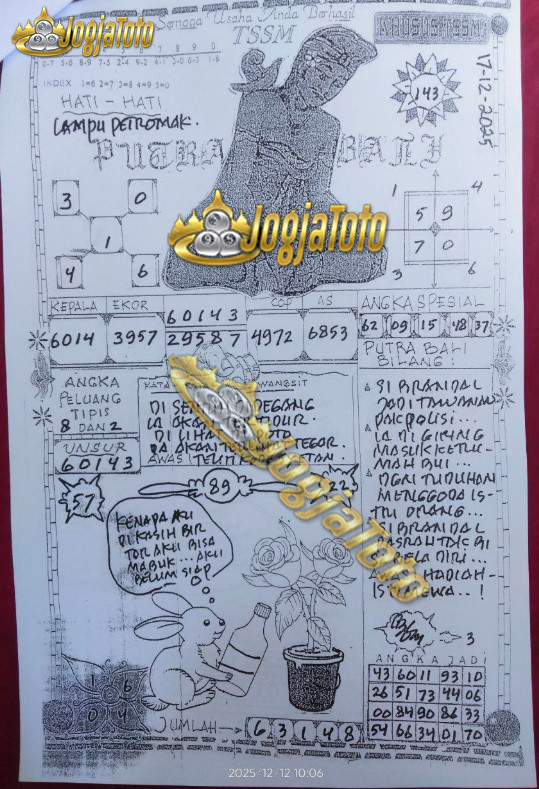 JogjaToto
Semoga Usaha Anda Berhasil
TSSM
KHUSUS TSSM
7 8 9 0
INDEX 1=6 2=7 3=8 4=9 5=0
HATI - HATI
LAMPU PETROMAK.
143
17-12-2025
PUTRA BALI
3 0
1
4 6
1 4
5 9
7 0
3 6
JogjaToto
KEPALA EKOR 60143 COP AS ANGKA SPESIAL
6014 3957 29587 4972 6853 62 09 15 48 37
PUTRA BALI
BILANG :
ANGKA
PELUANG
TIPIS
8 DAN 2
UNSUR
60143
KATA WANGSIT
DI
LA AKAN
DI LIHA
LA AKAN TEGAR.
AWAS
SI BRANDAL
JADI TAWANAN
PAK POLISI...
IA DI GIRING
MASUK KE RU-
MAH BUI ...
DGN TUDUHAN
MENGGODA IS-
TRI ORANG...
SI BRANDAL
PASRAH TAK BI
DIRI...
HADIAH
57
89
22
JogjaToto
KENAPA AKU
DI KASIH BIR
TOR AKU BISA
MABUK... AKU
BELUM SIAP
3
ANGKA JADI
43 60 11 93 10
26 51 73 44 06
00 84 90 86 33
54 66 34 01 70
1 6
0 4
JUMLAH 6 3 1 4 8
2025/12/12 10:06